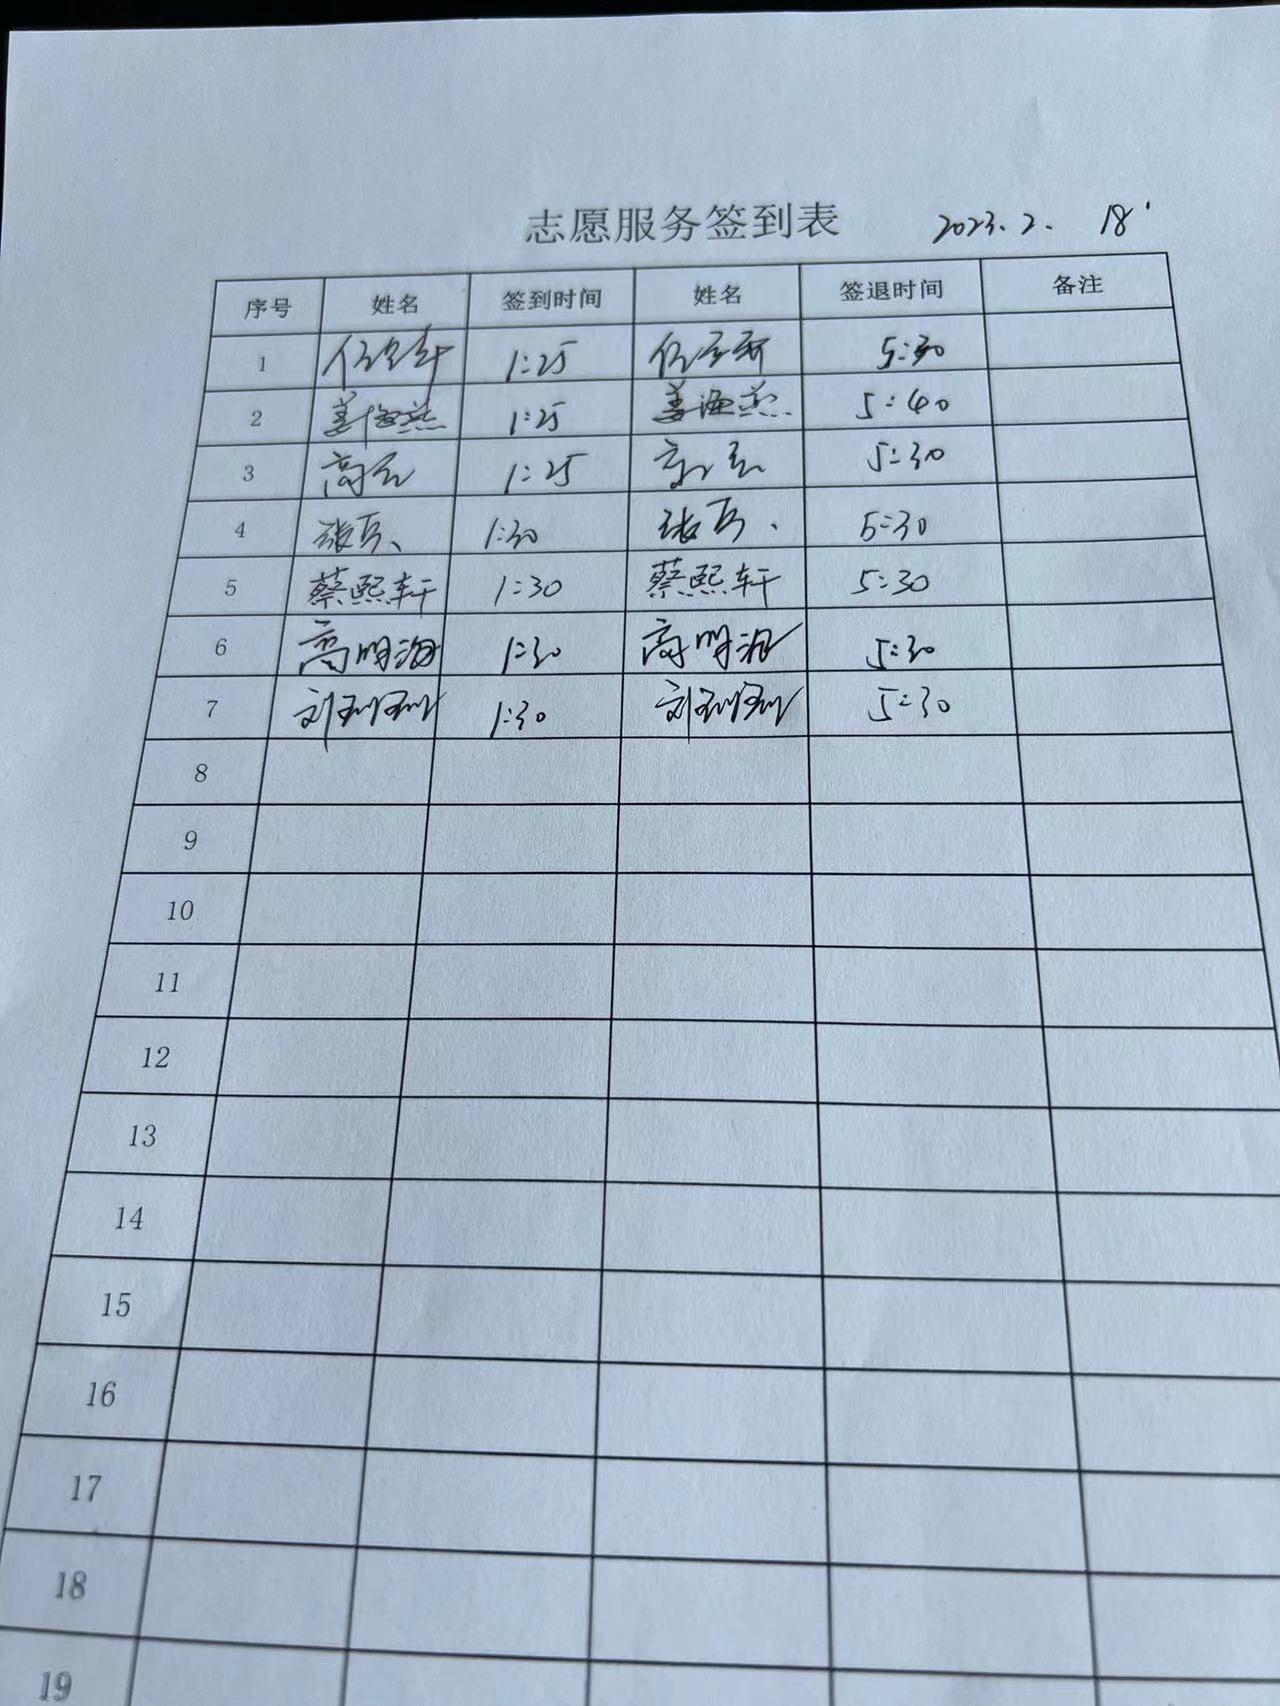 志愿服务签到表 2023.2. 18
序号 姓名 签到时间 姓名 签退时间 备注
1 1:25 5:30
2 姜海燕 1:25 姜海燕 5:40
3 1:25 5:30
4 1:30 5:30
5 蔡熙轩 1:30 蔡熙轩 5:30
6 高明海 1:30 高明海 5:30
7 1:30 5:30
8
9
10
11
12
13
14
15
16
17
18
19